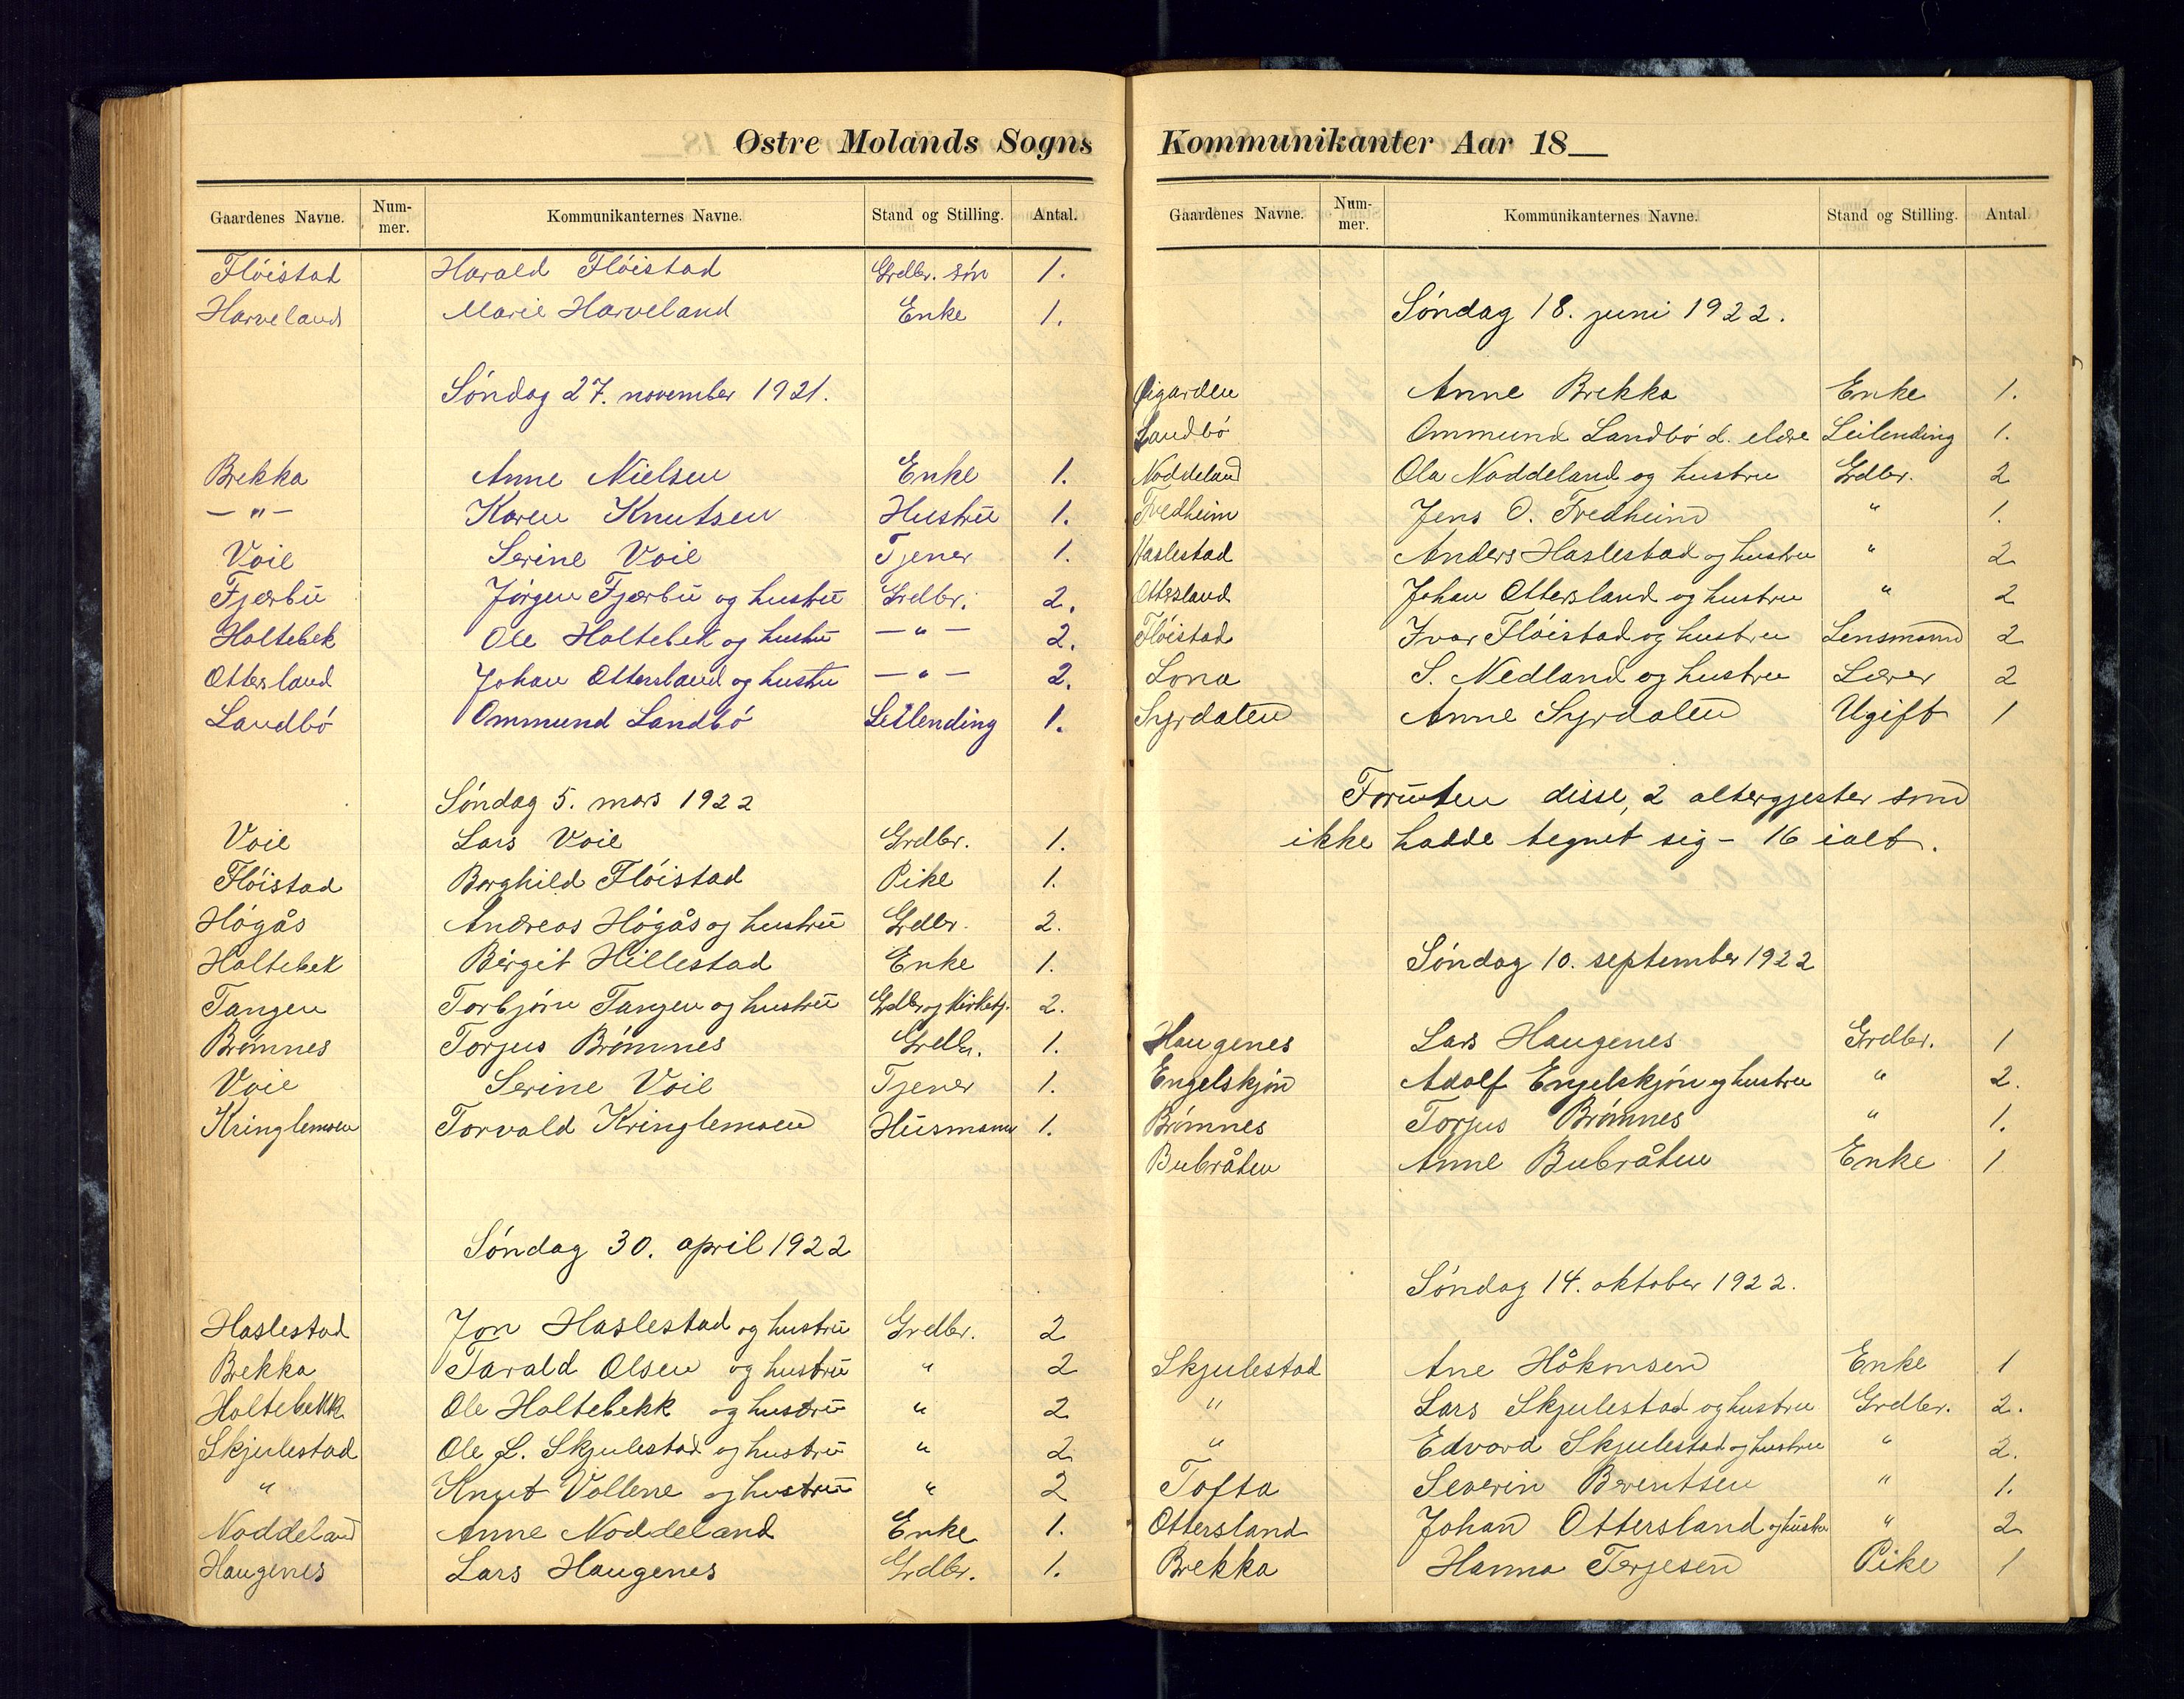 Østre Molands Sogns
Gaardenes Navne. Num-mer. Kommunikanternes Navne. Stand og Stilling. Antal.
Flöistad Harald Flöistad Grdbr. søn 1.
Harveland Marie Harveland Enke 1.
Søndag 27. november 1921.
Brekka Anne Nielsen Enke 1.
— " — Karen Knutsen Hustru 1.
Voie Serine Voie Tjener 1.
Fjærbu Jørgen Fjærbu og hustru Grdbr. 2.
Holtebek Ole Holtebek og hustru — " — 2.
Ottersland Johan Ottersland og hustru — " — 2.
Landbö Ommund Landbö Leilending 1.
Søndag 5. mars 1922
Voie Lars Voie Grdbr. 1.
Flöistad Borghild Flöistad Pike 1.
Högås Andreas Högås og hustru Grdbr. 2.
Holtebek Birgit Hillestad Enke 1.
Tangen Torbjørn Tangen og hustru Grdbr og Kirketj. 2.
Brømnes Torjus Brømnes Grdbr. 1.
Voie Serine Voie Tjener 1.
Kringlemoen Torvald Kringlemoen Husmann 1.
Søndag 30. april 1922
Haslestad Jon Haslestad og hustru Grdbr. 2
Brekka Tarald Olsen og hustru " 2
Holtebekk Ole Holtebekk og hustru " 2
Skjulestad Ole L. Skjulestad og hustru " 2
" Knut Vollene og hustru " 2
Noddeland Anne Noddeland Enke 1.
Haugenes Lars Haugenes Grdbr. 1.
Kommunikanter Aar 18__
Gaardenes Navne. Num-mer. Kommunikanternes Navne. Stand og Stilling. Antal.
Søndag 18. juni 1922.
Øigarden Anne Brekka Enke 1.
Landbö Ommund Landbö d. eldre Leilending 1.
Noddeland Ola Noddeland og hustru Grdbr. 2
Fredheim Jens O. Fredheim " 1.
Haslestad Anders Haslestad og hustru " 2
Ottersland Johan Ottersland og hustru " 2
Flöistad Ivar Flöistad og hustru Lensmann 2
Lona S. Nedland og hustru Lærer 2
Syrdalen Anne Syrdalen Ugift 1
Foruten disse, 2 altergjester som
ikke hadde tegnet sig – 16 ialt.
Søndag 10. september 1922
Haugenes Lars Haugenes Grdbr. 1
Engelskjøn Adolf Engelskjøn og hustru " 2.
Brømnes Torjus Brømnes " 1.
Bubråten Anne Bubråten Enke 1
Søndag 14. oktober 1922.
Skjulestad Ane Håkonsen Enke 1
" Lars Skjulestad og hustru Grdbr. 2.
" Edvard Skjulestad og hustru " 2.
Tofta Severin Berentsen " 1.
Ottersland Johan Ottersland og hustru " 2
Brekka Hanna Terjesen Pike 1